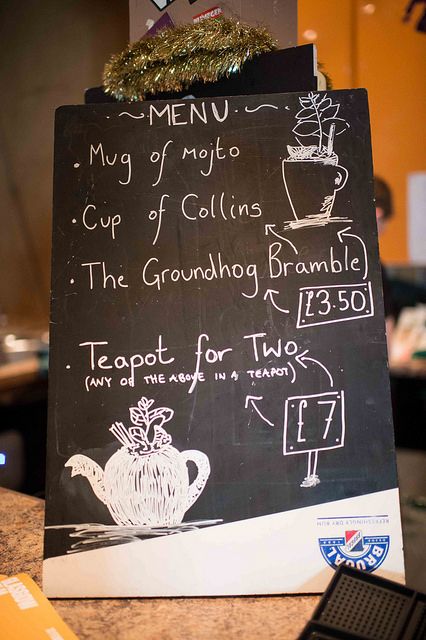 ~MENU~
· Mug of Mojto
· Cup of Collins
· The Groundhog Bramble
£3.50
· Teapot for Two
(ANY OF THE ABOVE IN A TEAPOT)
£7
REFRESHINGLY DRY RUM
BRUGAL